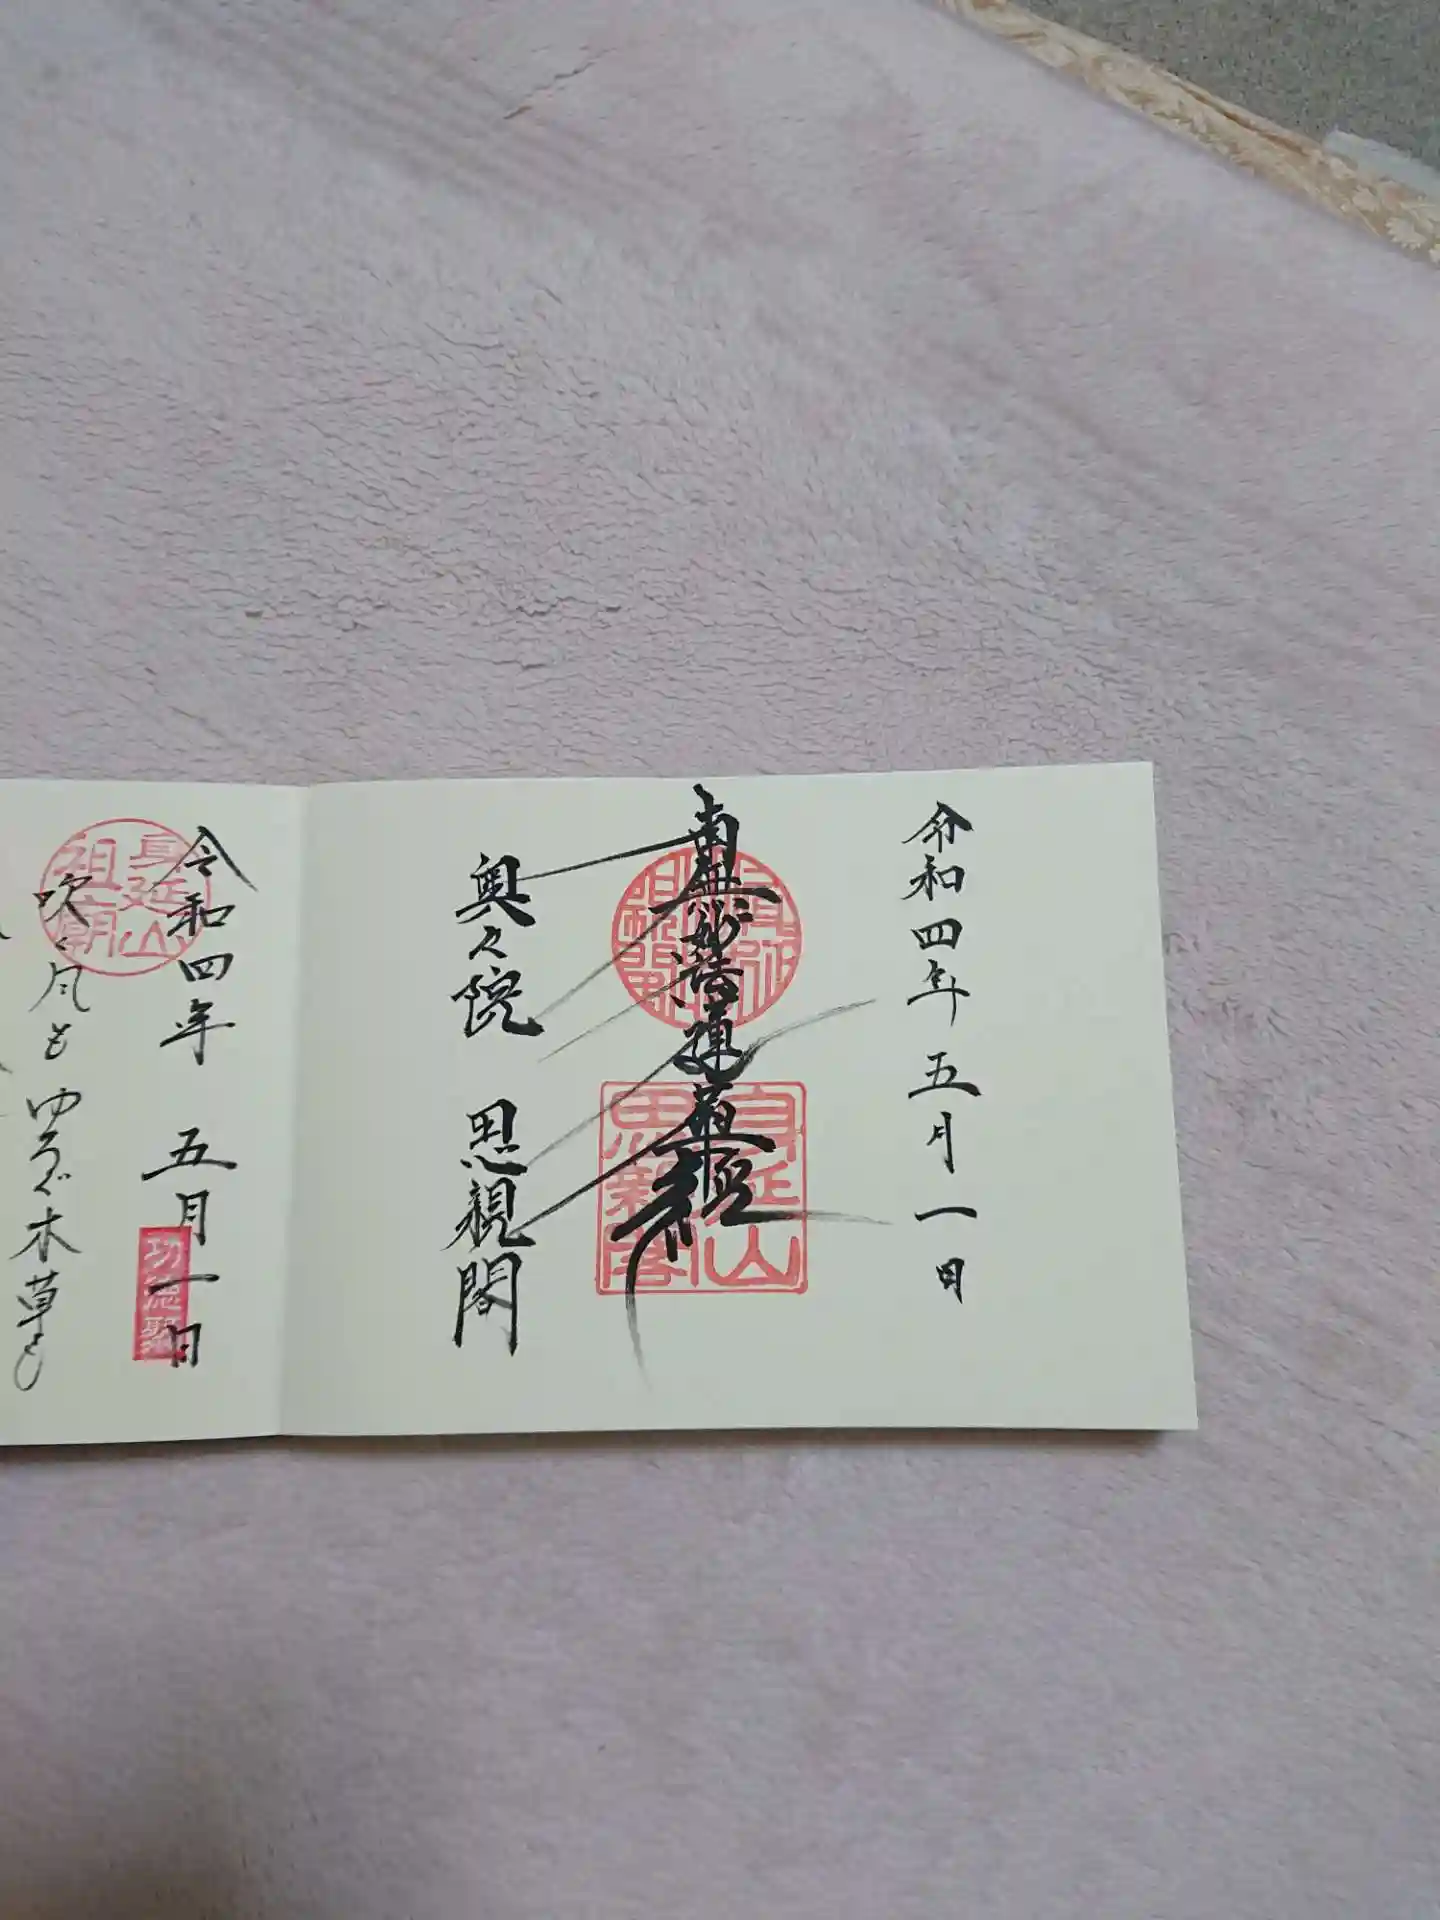 令和四年 五月一日
南無妙法蓮華経
身延山
思親閣
奥之院 思親閣
令和四年 五月一日
身延山
祖廟
功徳聚
吹く風もゆるぐ木草も